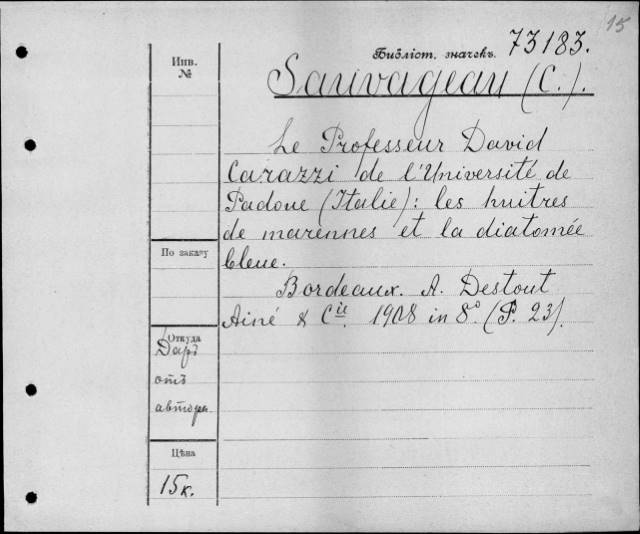 15
Инв.
№
Библіот. значекъ.
73183.
Sauvageau (C.).
Le Professeur David
Carazzi de l'Université de
Padoue (Italie): les huitres
de marennes et la diatomée
bleue.
Bordeaux. A. Destout
Ainé & Cie. 1908 in 8º. (P. 23).
По заказу
Откуда
Даръ
отъ
автора.
Цѣна
15к.